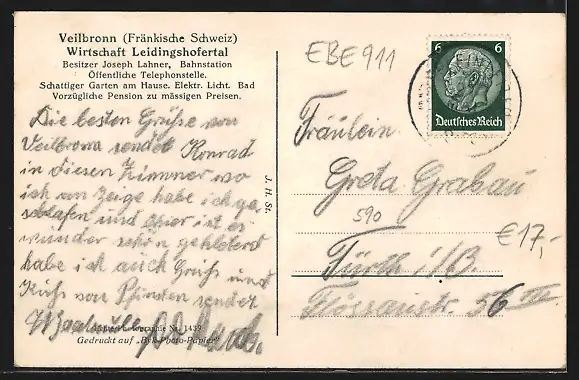 Veilbronn (Fränkische Schweiz)
Wirtschaft Leidingshofertal
Besitzer Joseph Lahner, Bahnstation
Öffentliche Telephonstelle.
Schattiger Garten am Hause. Elektr. Licht. Bad
Vorzügliche Pension zu mässigen Preisen.
Die besten Grüße von
Veilbronn sendet Konrad
in diesen Zimmer wo
ich an Zeige habe ich ge-
schlafen und hier ist es
wunder schön
habe ich auch Grüß und
Kuß von sendet
Nr. 1439
Gedruckt auf „Byk-Photo-Papier"
J. H. St.
EBE911
6 6
Deutsches Reich
Fräulein
Greta Grabau
590
€17,-
Fürth i/B.
Flössaustr. 56 III